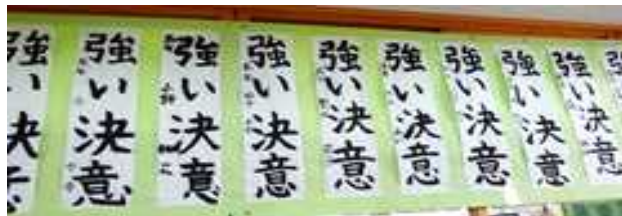 強い決意
強い決意
強い決意
強い決意
強い決意
強い決意
強い決意
強い決意
強い決意
強